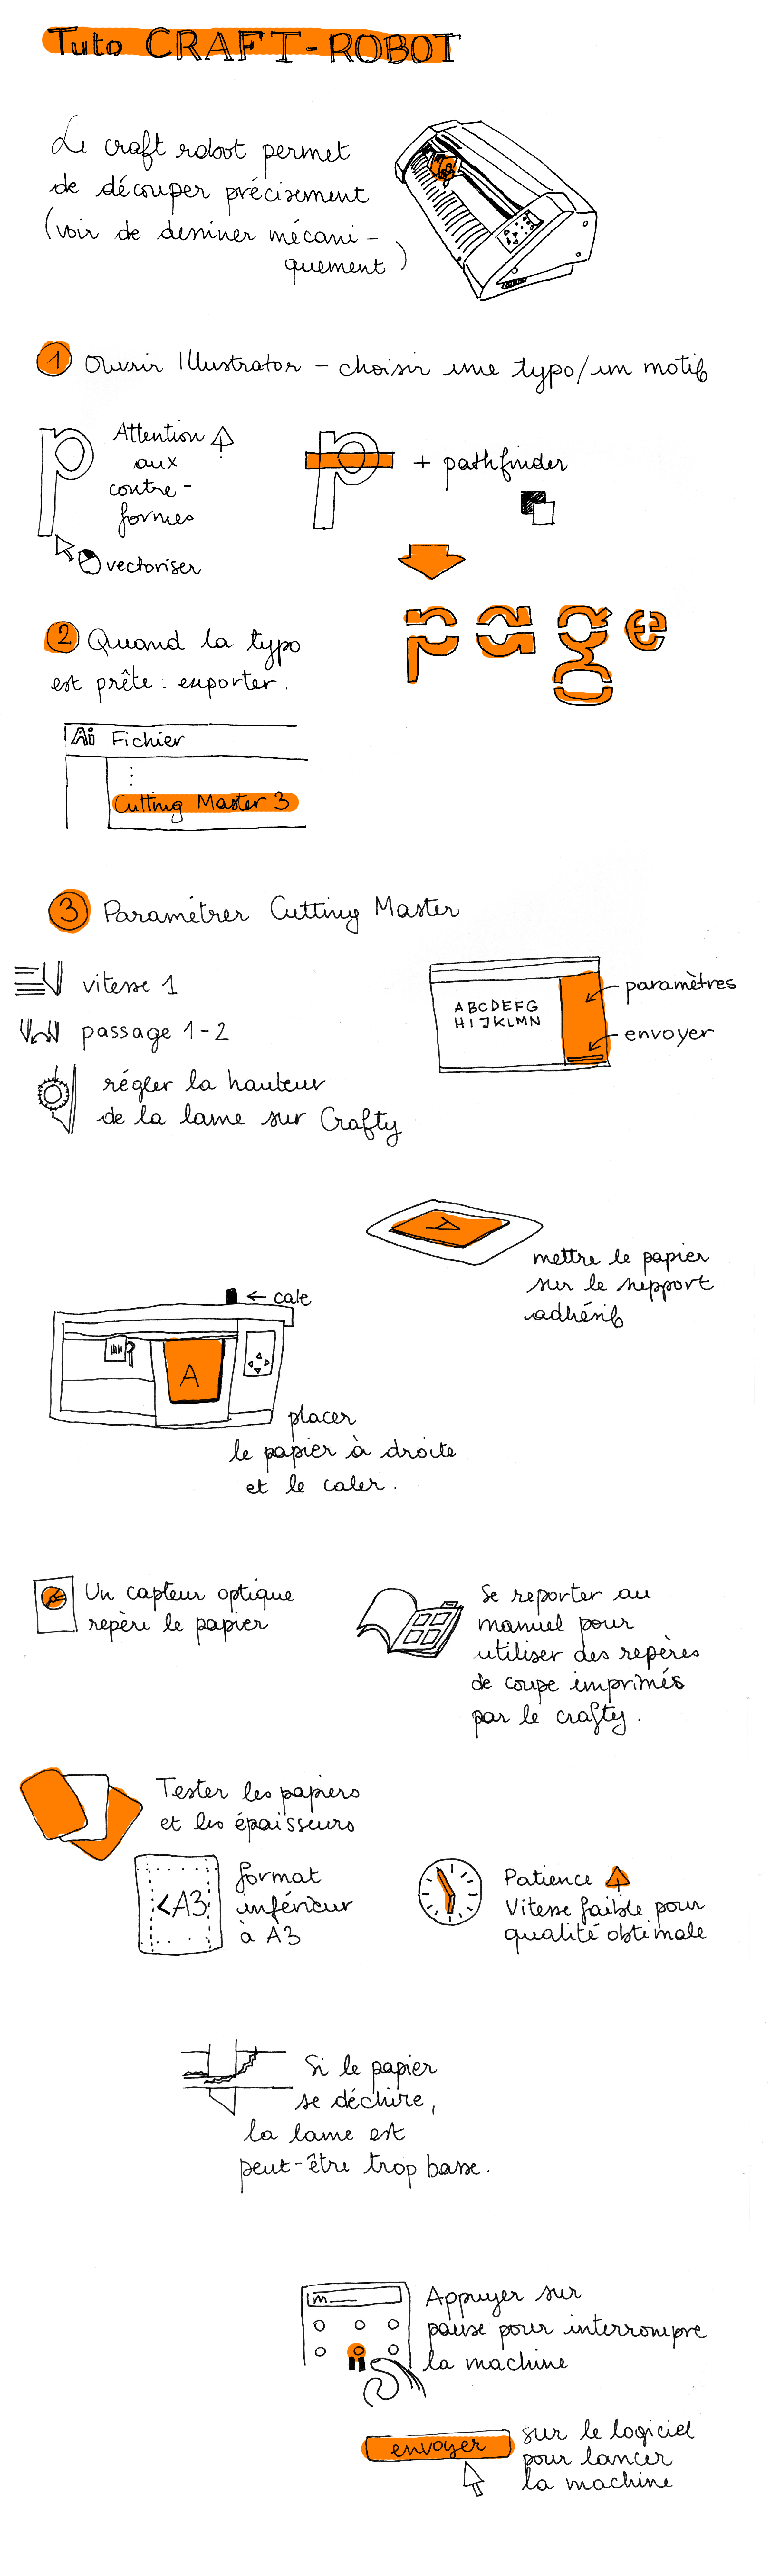 Tuto CRAFT-ROBOT
Le craft robot permet
de découper précisement
(voir de dessiner mécani-
quement)
1 Ouvrir Illustrator - choisir une typo/un motif
Attention
aux
contre-
formes
vectoriser
+ pathfinder
page
2 Quand la typo
est prête : exporter.
Ai Fichier
Cutting Master 3
3 Paramétrer Cutting Master
vitesse 1
passage 1-2
régler la hauteur
de la lame sur Crafty
ABCDEFG
HIJKLMN
paramètres
envoyer
A
mettre le papier
sur le support
adhésif
← cale
A
placer
le papier à droite
et le caler.
Un capteur optique
repère le papier
Se reporter au
manuel pour
utiliser des repères
de coupe imprimés
par le crafty.
Tester les papiers
et les épaisseurs
<A3
format
inférieur
à A3
Patience
Vitesse faible pour
qualité obtimale
Si le papier
se déchire,
la lame est
peut-être trop basse.
Appuyer sur
pause pour interrompre
la machine
envoyer
sur le logiciel
pour lancer
la machine